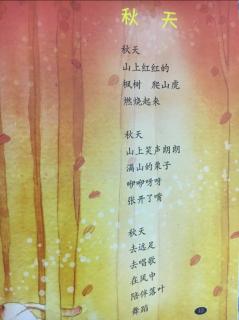 秋 天
秋天
山上红红的
枫树 爬山虎
燃烧起来
秋天
山上笑声朗朗
满山的栗子
咿咿呀呀
张开了嘴
秋天
去远足
去唱歌
在风中
陪伴落叶
舞蹈